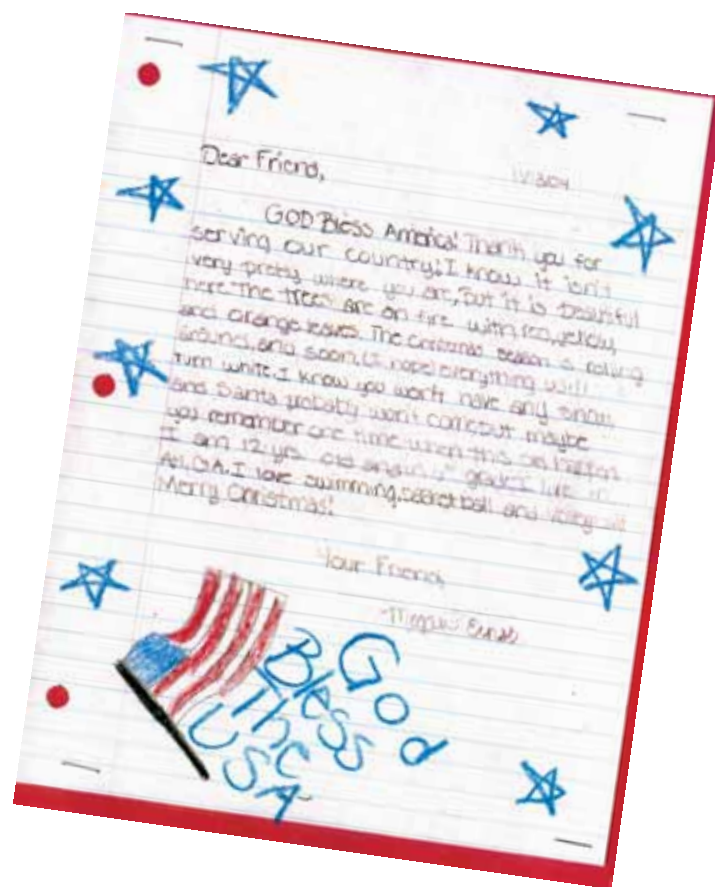 Dear Friend,
GOD Bless America! Thank you for
serving our country! I know it isn't
very pretty where you are, but it is beautiful
here. The trees are on fire with red, yellow,
and orange leaves. The christmas season is rolling
around, and soon, (I hope) everything will
turn white. I know you won't have any snow,
and Santa probably won't come, but maybe
you remember one time when this did happen.
I am 12 yrs. old and in grade. I live in
I love swimming, basketball and
Merry Christmas!
Your Friend,
God
Bless
The
USA